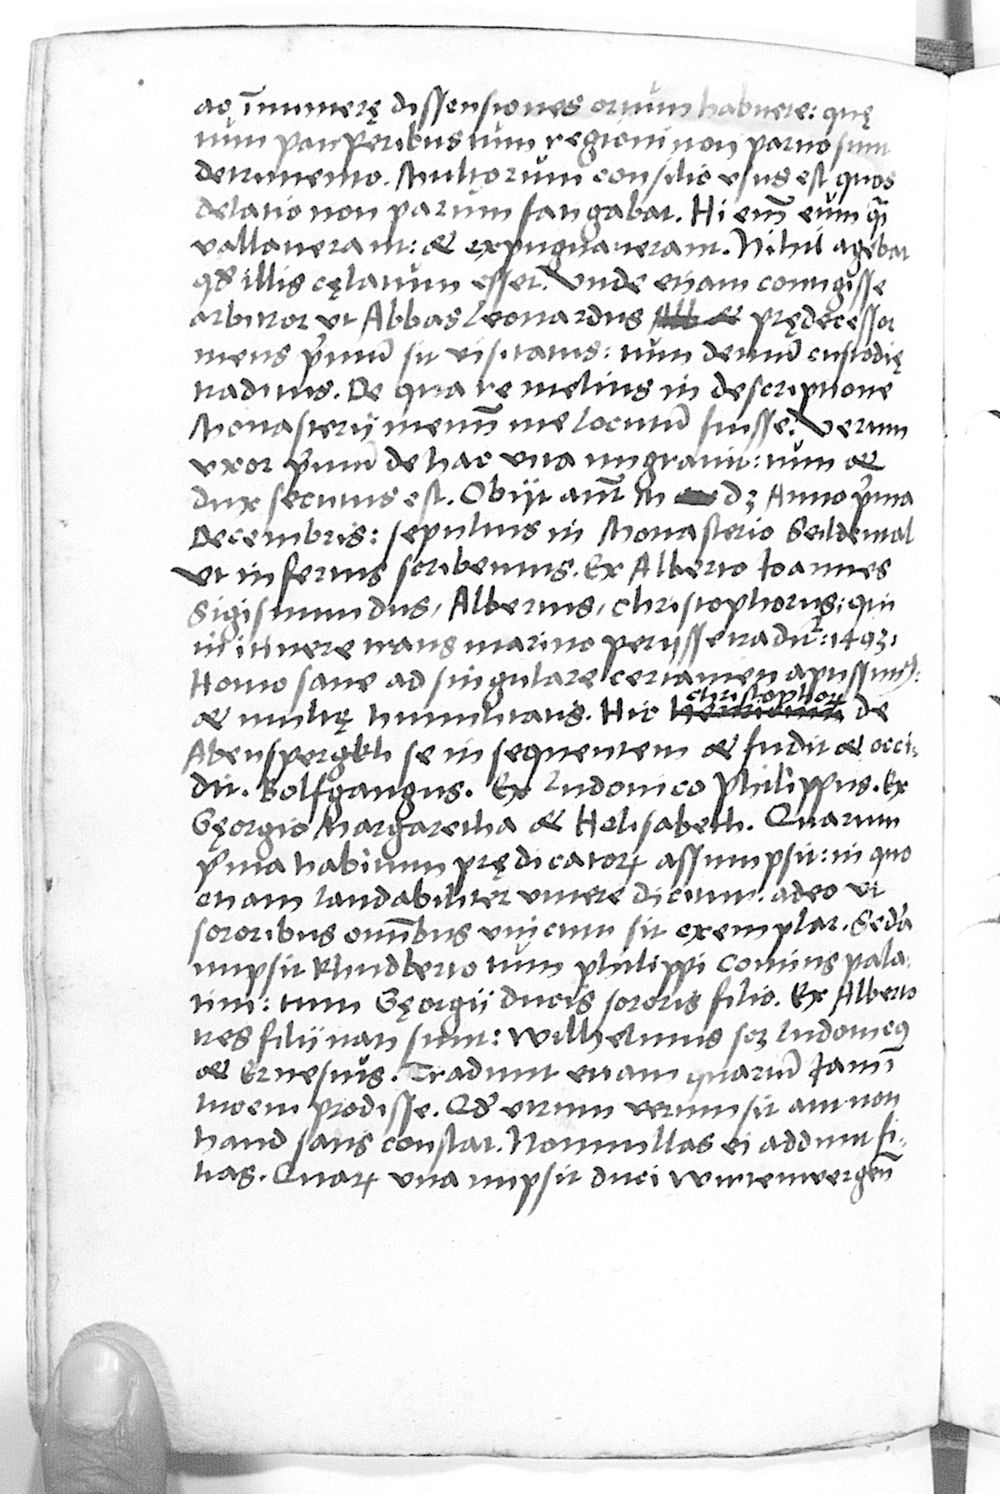 ac īnumerę dissensiones ortum habuere: quę
tum pauperibus tum regioni non paruo sunt
detrimento. Multorum consilio vsus est quos
delatio non parum fatigabat. Hi em̄ eum
vallauerant: & expugnauerant. Nihil agebat
qd̄ illis cęlatum esset. Vnde etiam contigisse
arbitror vt Abbas Leonardus prędecessor
meus p̄mum̄ sit visitatus: tum demum̄ custodię
traditus. De qua re melius in descriptione
Monasterij memin̄ me locutum̄ fuisse. Verum
vxor p̄mum̄ de hac vita migrauit: tum &
dux secutus est. Obijt aut̄ M dʒ Anno p̄ma
Decembris: sepultus in Monasterio Seildental
vt inferius scribemus. Ex Alberto Joannes
Sigismundus, Albertus, Christophorus: qui
in itinere transmarino perijsse tradit̄: 1493.
Homo sane ad singulare certamen aptissimꝰ:
& multę humilitatis. Hic christophorꝰ de
Abenspergkh se insequentem & fudit & occi-
dit. Bolfgangus. Ex Ludouico Philippus. Ex
Gęorgio Margaretha & Helisabeth. Quarum
p̄ma habitum prędicatorꝝ assumpsit: in quo
etiam laudabiliter viuere dicitur: adeo vt
sororibus omībus vnicum sit exemplar. Secd̄a
nupsit Rhudberto tum philippi Comitis pala-
tini: tum Gęorgij ducis sororis filio. Ex Alberto
tres filij nati sunt: Wilhelmus sʒ Ludouicꝰ
& Ernestus. Tradunt etiam quartum̄ Jam̄
lucem prodisse. Qd̄ vtrum verum sit aut non
haud satis constat. Nonnullas ei addunt fi-
lias. Quarꝝ vna nupsit duci Wirtenwergen̄